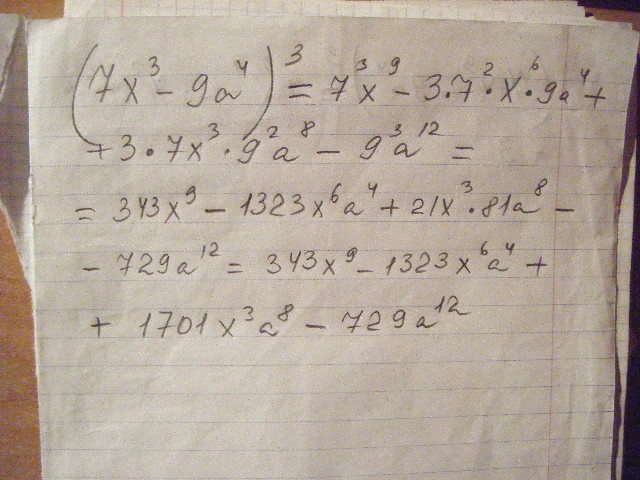 (7x³ - 9a⁴)³ = 7³x⁹ - 3·7²·x⁶·9a⁴ +
+ 3·7x³·9²a⁸ - 9³a¹² =
= 343x⁹ - 1323x⁶a⁴ + 21x³·81a⁸ -
- 729a¹² = 343x⁹ - 1323x⁶a⁴ +
+ 1701x³a⁸ - 729a¹²